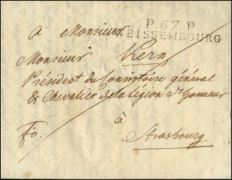 A Monsieur
P. 67. P.
WISSEMBOURG
Monsieur Kern
Président du Consistoire général
& Chevalier de la Légion d'honneur
fo.
à
Strasbourg